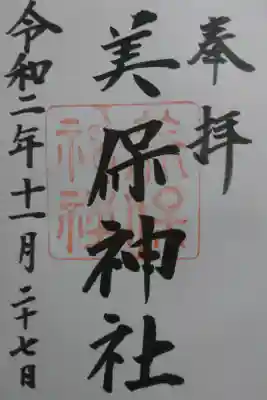 奉拝
美保神社
令和二年十一月二十七日